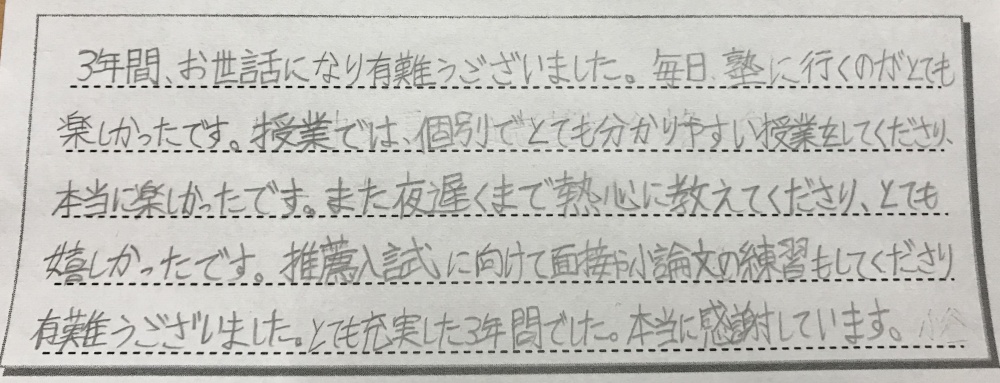 3年間、お世話になり有難うございました。毎日、塾に行くのがとても
楽しかったです。授業では、個別でとても分かりやすい授業をしてくださり、
本当に楽しかったです。また夜遅くまで熱心に教えてくださり、とても
嬉しかったです。推薦入試に向けて面接や小論文の練習もしてくださり
有難うございました。とても充実した3年間でした。本当に感謝しています。